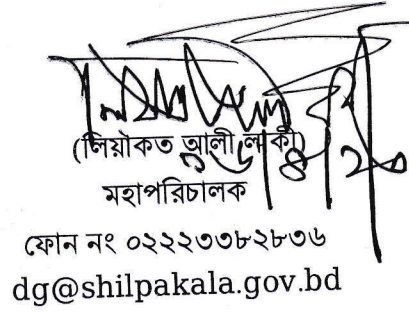 (লিয়াকত আলী লাকী)
মহাপরিচালক
ফোন নং ০২২২৩৩৮২৮৩৬
dg@shilpakala.gov.bd